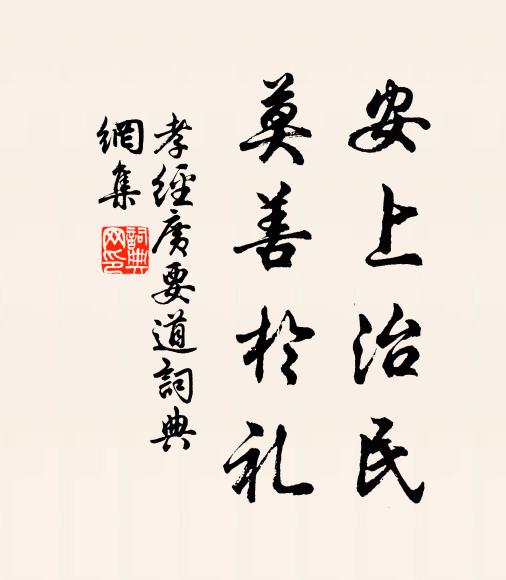 安上治民
莫善於礼
孝經廣要道詞典
網集
詞典
网印